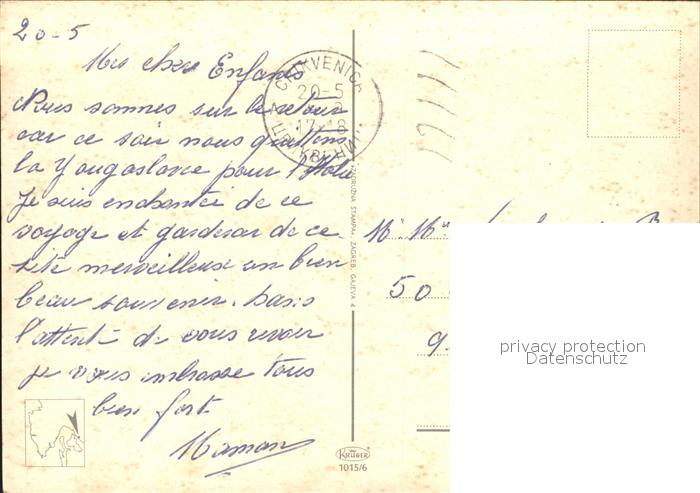 20-5
Mes chers Enfants
Nous sommes sur le retour
car ce soir nous quittons
la Yougoslavie pour l'Italie
Je suis enchantée de ce
voyage et garderai de ce
site merveilleux un bien
beau souvenir. Dans
l'attente de vous revoir
je vous embrasse tous
bien fort
Maman
CRIKVENICA
20-5
17-18
ЦРИКВЕНИЦА
ZADRUŽNA ŠTAMPA, ZAGREB, GAJEVA 4
Mr. Me
50
9
KRÜGER
1015/6
privacy protection
Datenschutz